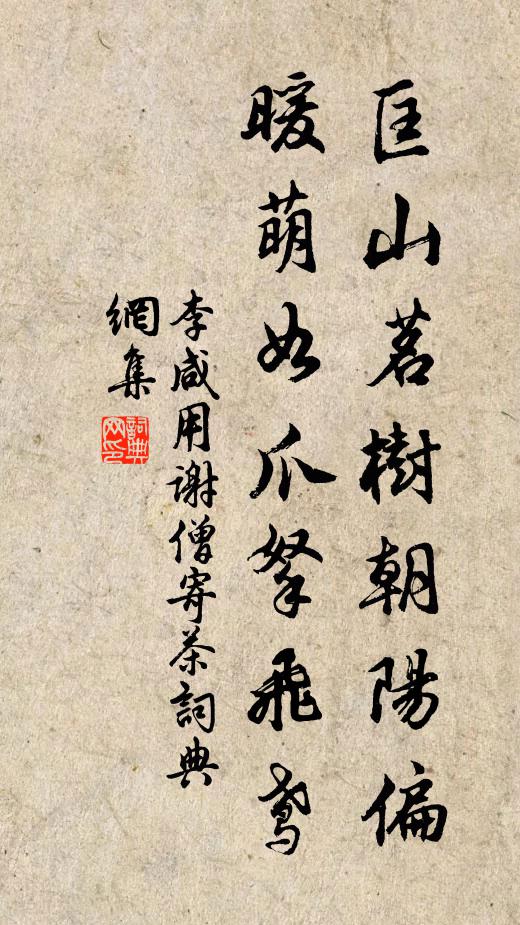 匡山茗樹朝陽偏
暖萌如爪拏飛鳶
李咸用謝僧寄茶詞典
網集
詞典
网印